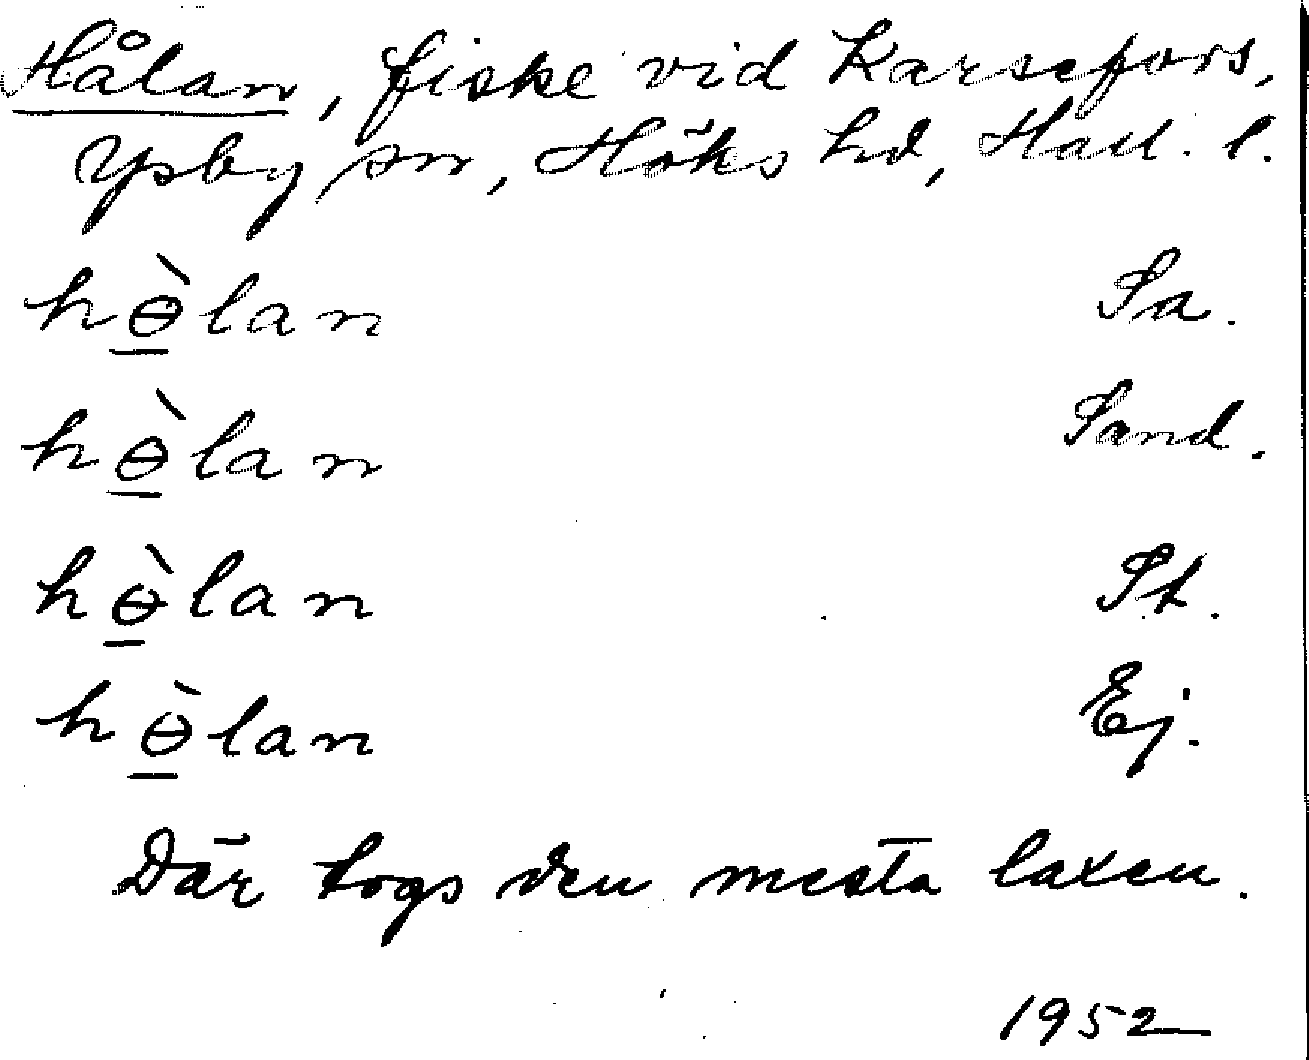 Hålan, fiske vid Karsefors,
Ysby sn, Höks hd, Hall. l.
hɵ̲̀lan Sa.
hɵ̲̀lan Sand.
hɵ̲̀lan St.
hɵ̲̀lan Ej.
Där togs den mesta laxen.
1952